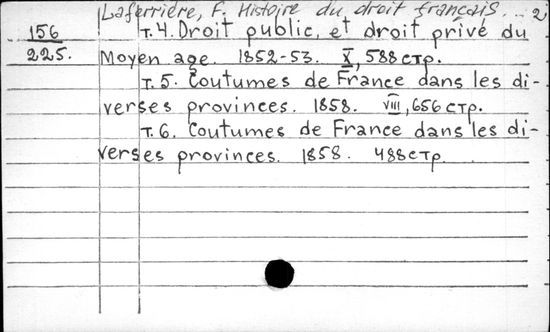 Laferrière, F. Histoire du droit français ... 2
156 т. 4. Droit public, et droit privé du
225. Moyen age. 1852-53. X, 588 стр.
т. 5. Coutumes de France dans les di-
verses provinces. 1858. VIII, 656 стр.
т. 6. Coutumes de France dans les di-
verses provinces. 1858. 488 стр.